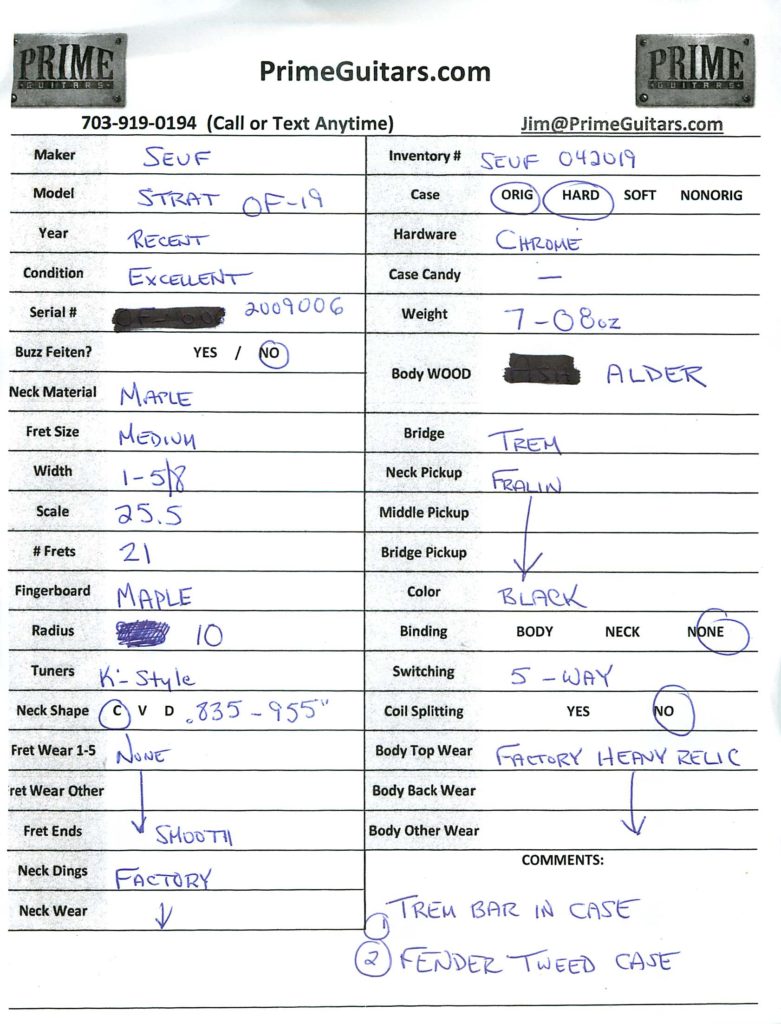 PRIME
GUITARS
PrimeGuitars.com
PRIME
GUITARS
703-919-0194 (Call or Text Anytime)
Jim@PrimeGuitars.com
Maker SEUF
Model STRAT OF-19
Year RECENT
Condition EXCELLENT
Serial # 2009006
Buzz Feiten? YES / NO
Neck Material MAPLE
Fret Size MEDIUM
Width 1-5/8
Scale 25.5
# Frets 21
Fingerboard MAPLE
Radius 10
Tuners K-Style
Neck Shape C V D .835-955"
Fret Wear 1-5 NONE
ret Wear Other
Fret Ends SMOOTH
Neck Dings FACTORY
Neck Wear
Inventory # SEUF 042019
Case ORIG HARD SOFT NONORIG
Hardware CHROME
Case Candy —
Weight 7-08oz
Body WOOD ALDER
Bridge TREM
Neck Pickup FRALIN
Middle Pickup
Bridge Pickup
Color BLACK
Binding BODY NECK NONE
Switching 5-WAY
Coil Splitting YES NO
Body Top Wear FACTORY HEAVY RELIC
Body Back Wear
Body Other Wear
COMMENTS:
1 TREM BAR IN CASE
2 FENDER TWEED CASE